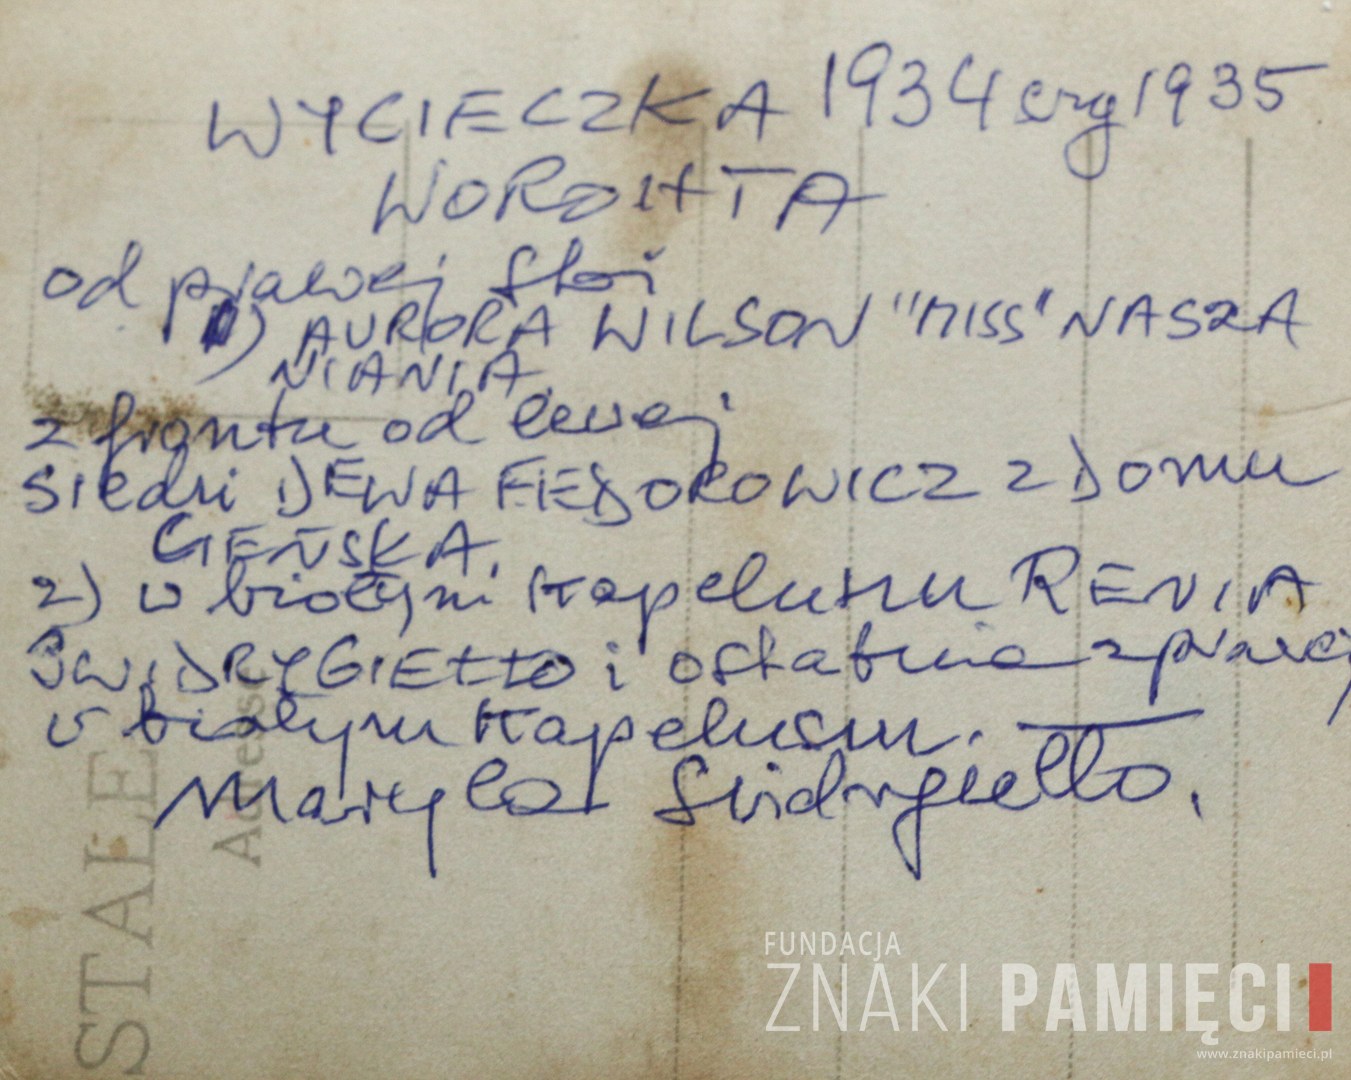 WYCIECZKA 1934 czy 1935
WOROHTA
od prawej stoi
1) AURORA WILSON "MISS" NASZA
NIANIA.
z frontu od lewej
siedzi DEWA FIEDOROWICZ z Domu
GIEŃSKA.
2) w białym kapeluszu RENIA
ŚWIDRYGIEŁŁO i ostatnia z prawej
w białym kapeluszu.
Maryla Świdrygiełło.
STALE
Adresse
FUNDACJA
ZNAKI PAMIĘCI
www.znakipamieci.pl